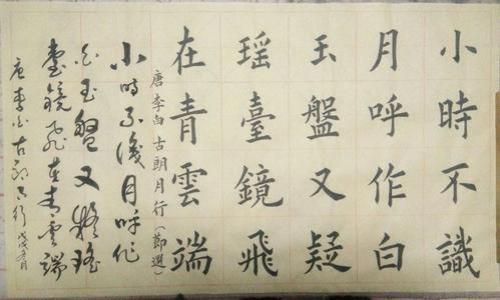 小時不識
月呼作白
玉盤又疑
瑶臺鏡飛
在青雲端
唐李白古朗月行（節選）
小时不识月呼作
白玉盤又疑瑤
臺鏡飛在青雲端
唐李白古朗月行